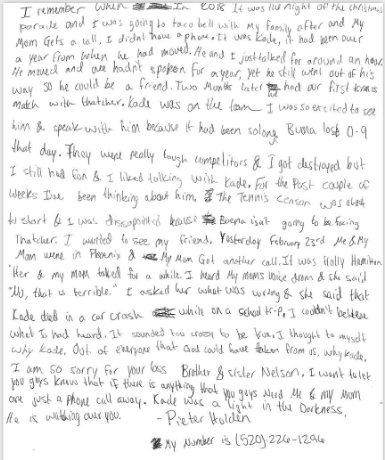 I remember when in 2018 It was the night of the christmas
parade and I was going to taco bell with my family after and My
Mom Gets a call, I didnt have a phone. It was Kade, it had been over
a year from when he had moved. He and I just talked for around an hour.
He moved and we hadn't spoken for a year, yet he still went out of his
way so he could be a friend. Two months later we had our first tennis
match with thatcher. Kade was on the team I was so excited to see
him & speak with him because it had been so long. Buena lost 0-9
that day. They were really tough competitors & I got destroyed but
I still had fun & I liked talking with Kade. For the Past couple of
weeks I've been thinking about him, The Tennis season was about
to start & I was dissapointed because Buena isn't going to be facing
Thatcher. I wanted to see my friend. Yesterday February 23rd Me & My
Mom were in Phoenix & My Mom Got another call. It was Holly Hamilton
Her & my mom talked for a while. I heard My moms voice drown & she said
"No, that is terrible." I asked her what was wrong & she said that
Kade died in a car crash while on a school trip. I couldn't believe
what I had heard. It sounded too crazy to be true. I thought to myself
why Kade. Out of everyone that God could have taken from us, why Kade.
I am so sorry for your loss Brother & sister Nelson. I want to let
you guys know that if there is anything that you guys Need Me & my Mom
are just a phone call away. Kade was a light in the Darkness.
He is watching over you. - Pieter Holden
My Number is (520)-226-1296